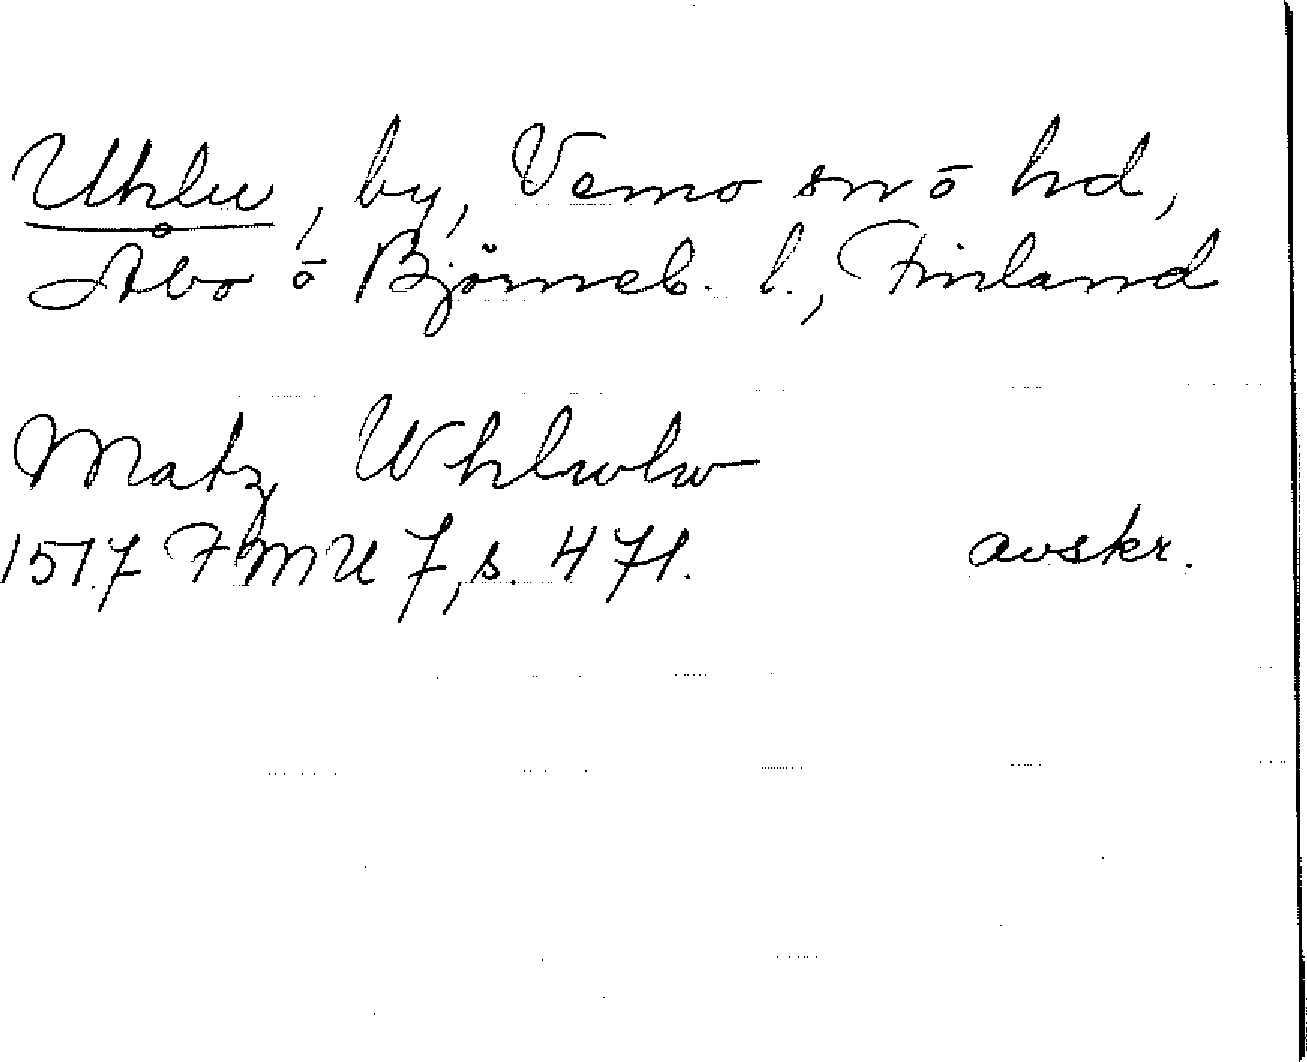 Uhlu, by, Vemo sn o hd,
Åbo o Björneb. l., Finland
Matz Whlwlw
1517 FMU 7, s. 471. avskr.